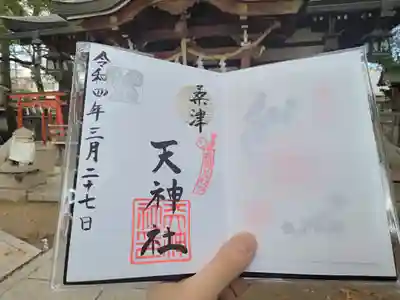 桑津
天神社
令和四年三月二十七日